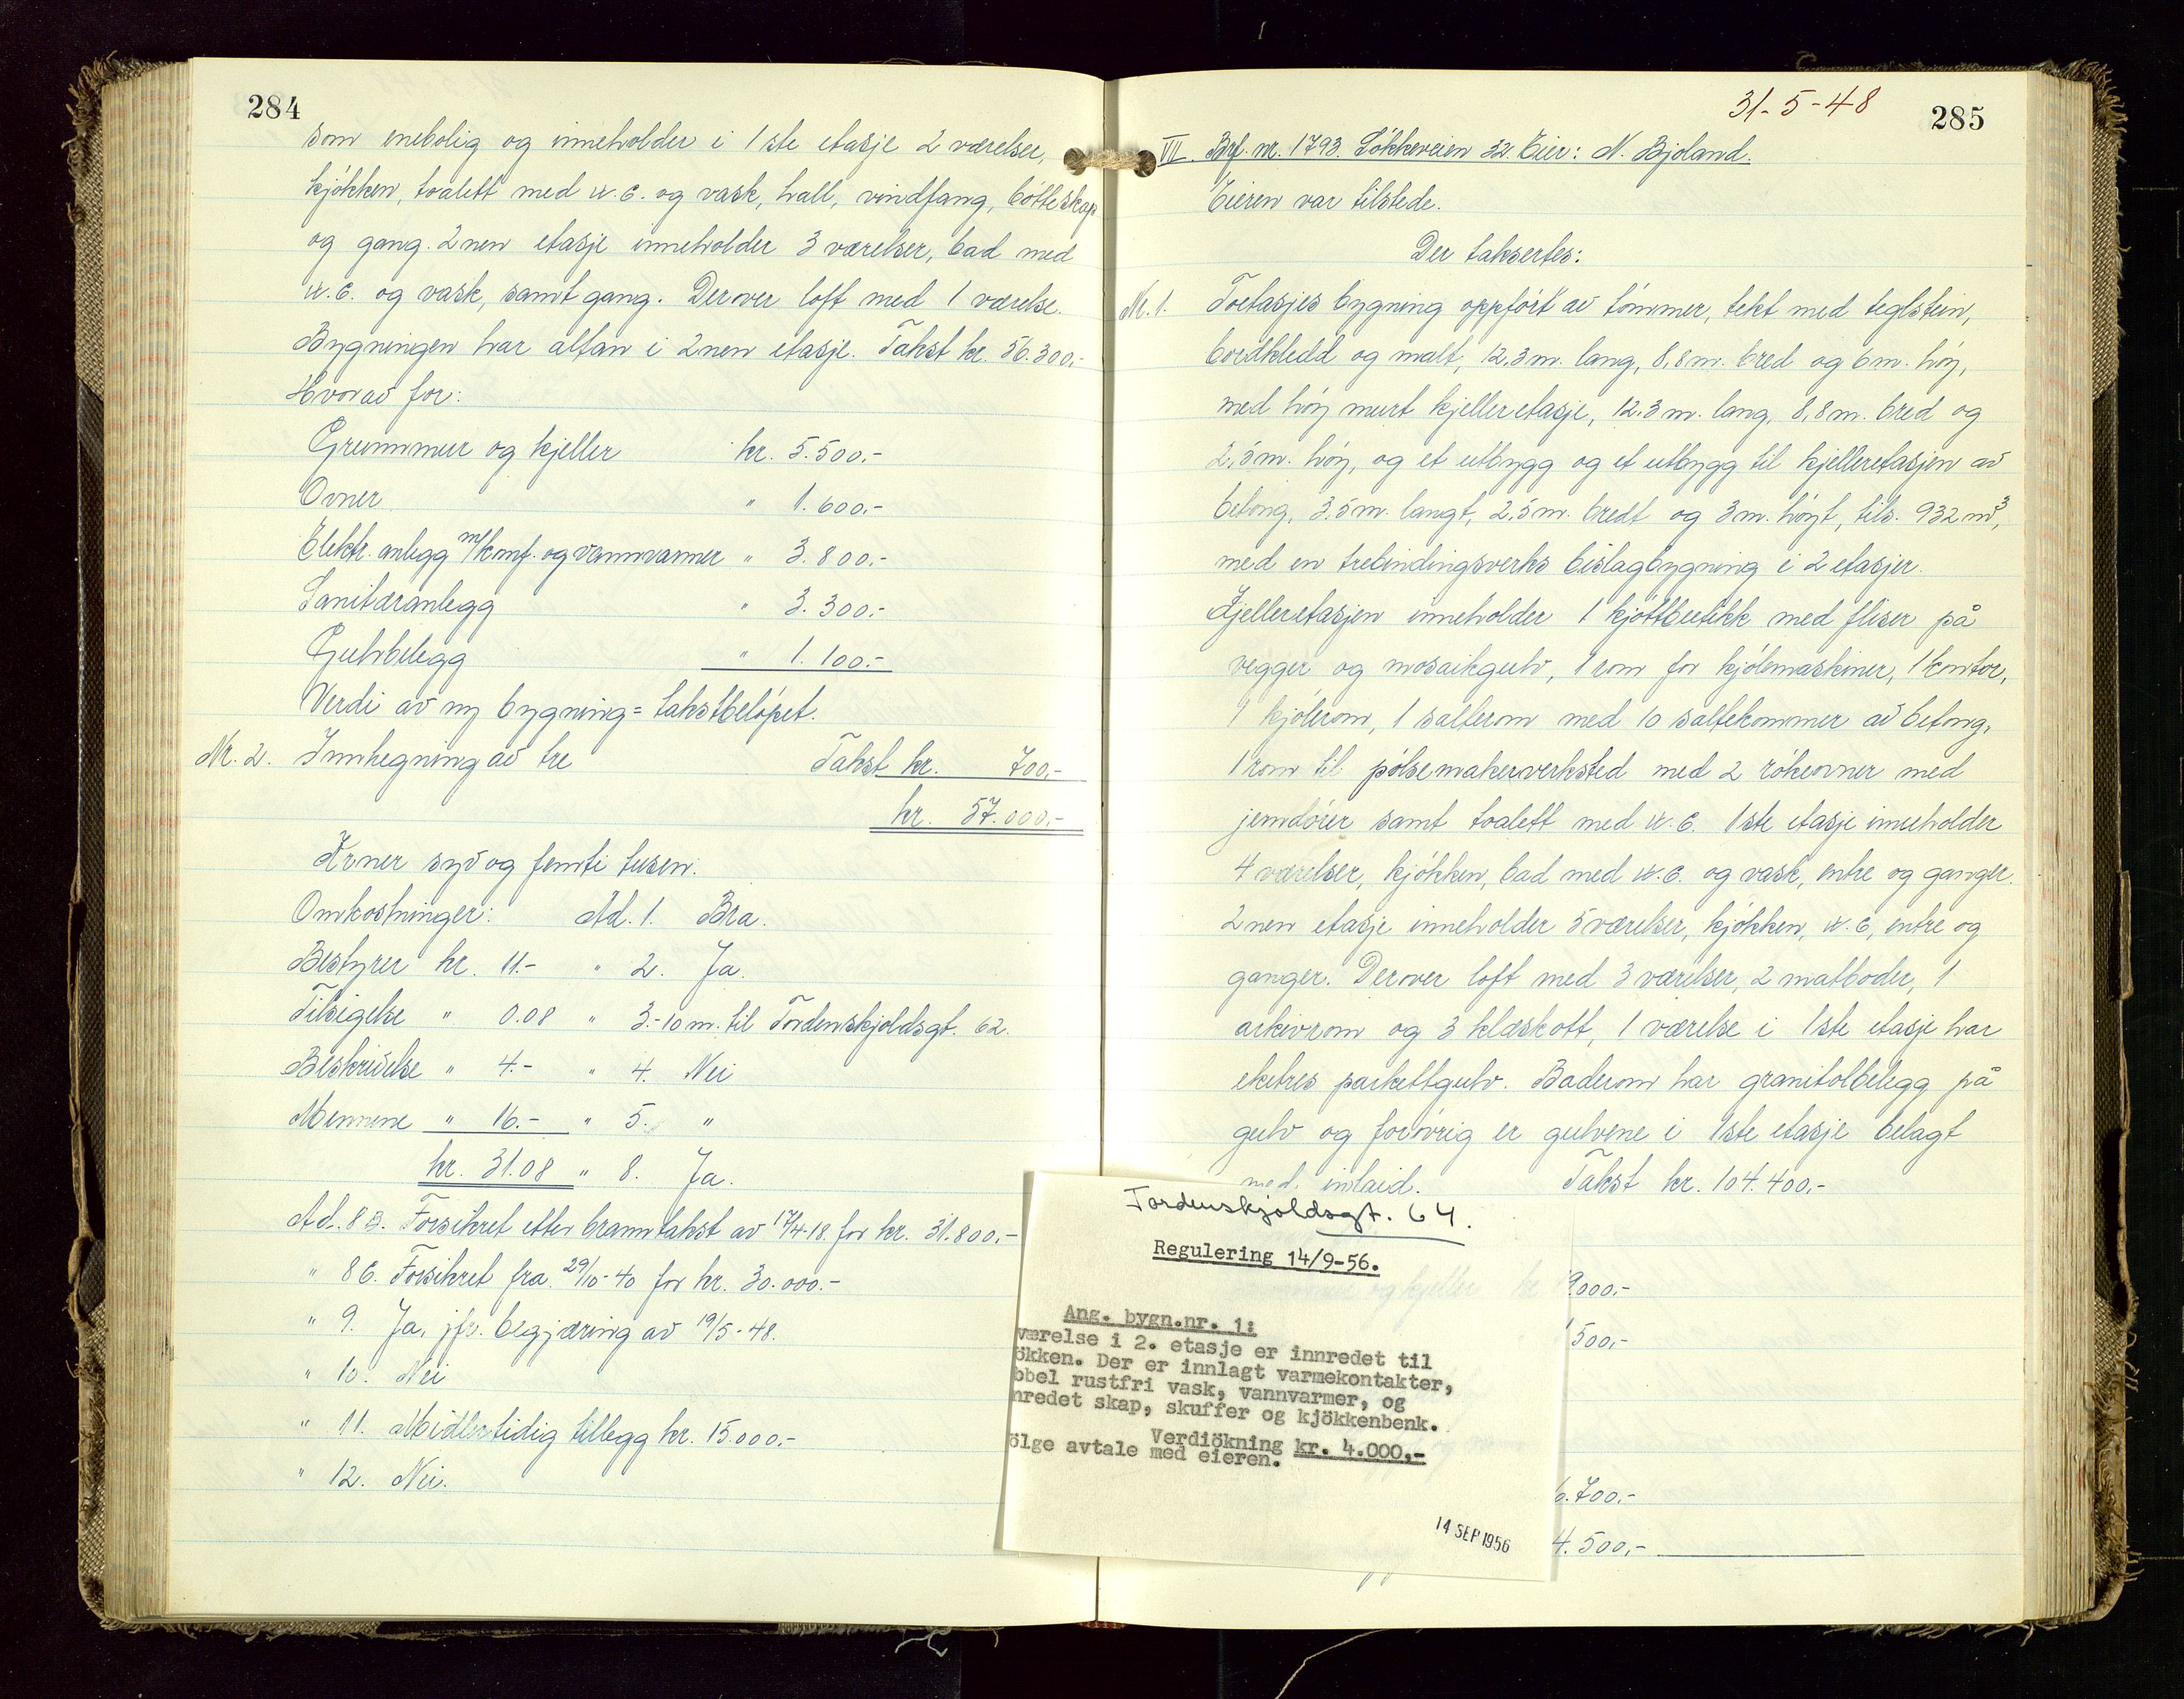 284
som enebolig og inneholder i 1ste etasje 2 værelser,
kjökken, toalett med w.c. og vask, hall, vindfang, bötteskap
og gang. 2nen etasje inneholder 3 værelser, bad med
w.c. og vask, samt gang. Derover loft med 1 værelse.
Bygningen har altan i 2nen etasje. Takst kr. 56.300.-
Hvorav for:
Grunnmur og kjeller kr. 5.500.-
Ovner " 1.600.-
Elektr. anlegg m/komf. og vannvarmer " 3.800.-
Sanitæranlegg " 3.300.-
Gulvbelegg " 1.100.-
Verdi av ny bygning = takstbelöpet.
Nr. 2. Innhegning av tre Takst kr. 700.-
kr. 57.000.-
Kroner syv og femti tusen.
Omkostninger: Ad. 1. Bra.
Bestyrer kr. 11.- " 2. Ja.
Tilsigelse " 0.08 " 3.-10 m. til Tordenskjoldsgt. 62.
Beskrivelse " 4.- " 4. Nei
Mennene " 16.- " 5. "
kr. 31.08 " 8. Ja.
Ad. 8 B. Forsikret etter branntakst av 17/4-18. for kr. 31.800.-
" 8 C. Forsikret fra 29/10-40 for kr. 30.000.-
" 9. Ja, jfr. begjæring av 19/5-48.
" 10. Nei
" 11. Midlertidig tillegg kr. 15.000.-
" 12. Nei.
31-5-48 285
VII. Brf. nr. 1793. Lökkeveien 32. Eier: N. Bjoland.
Eieren var tilstede.
Der taksertes:
Nr. 1. Toetasjes bygning oppfört av tömmer, tekt med teglstein,
bordkledd og malt, 12,3 m. lang, 8,8 m. bred og 6 m. höy,
med höy murt kjelleretasje, 12.3 m. lang, 8,8 m. bred og
2,5 m. höy, og et utbygg og et utbygg til kjelleretasjen av
betong, 3,5 m. langt, 2,5 m. bredt og 3 m. höyt, tils. 932 m³,
med en trebindingsverks bislagbygning i 2 etasjer.
Kjelleretasjen inneholder 1 kjöttbutikk med fliser på
vegger og mosaikgulv, 1 rom for kjölemaskiner, 1 kontor,
1 kjölerom, 1 salterom med 10 saltekommer av betong,
1 rom til pölsemakerverksted med 2 rökeovner med
jerndörer samt toalett med w.c. 1ste etasje inneholder
4 værelser, kjökken, bad med w.c. og vask, entre og ganger.
2nen etasje inneholder 5 værelser, kjökken, w.c, entre og
ganger. Derover loft med 3 værelser, 2 matboder, 1
arkivrom og 3 kleskott, 1 værelse i 1ste etasje har
eketres parkettgulv. Baderom har granitolbelegg på
gulv og forövrig er gulvene i 1ste etasje belagt
med inlaid. Takst kr. 104.400,-
9.000.-
500,-
6.700.-
4.500,-
Tordenskjoldsgt. 64.
Regulering 14/9-56.
Ang. bygn.nr. 1:
værelse i 2. etasje er innredet til
ökken. Der er innlagt varmekontakter,
bbel rustfri vask, vannvarmer, og
nredet skap, skuffer og kjökkenbenk.
Verdiökning kr. 4.000,-
ölge avtale med eieren.
14 SEP 1956